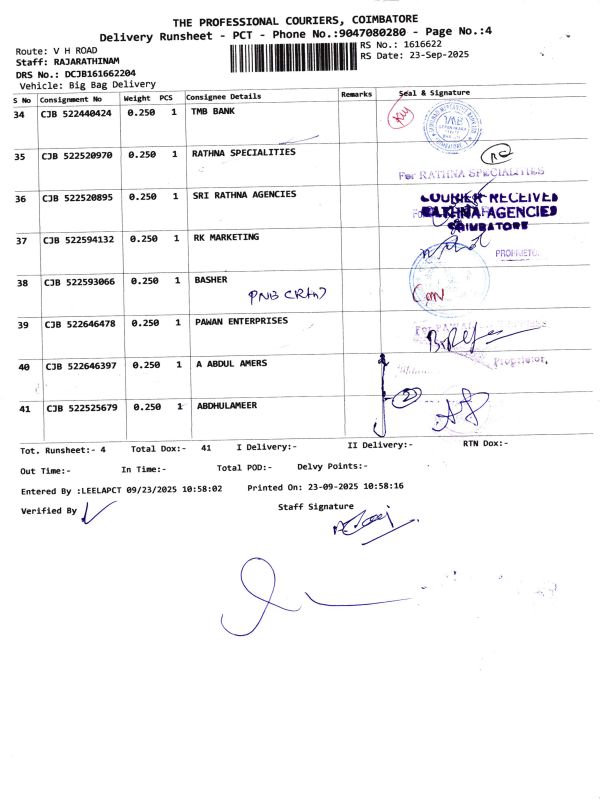 THE PROFESSIONAL COURIERS, COIMBATORE
Delivery Runsheet - PCT - Phone No.:9047080280 - Page No.:4
Route: V H ROAD
RS No.: 1616622
Staff: RAJARATHINAM
RS Date: 23-Sep-2025
DRS No.: DCJB161662204
Vehicle: Big Bag Delivery
S No Consignment No Weight PCS Consignee Details Remarks Seal & Signature
34 CJB 522440424 0.250 1 TMB BANK
35 CJB 522520970 0.250 1 RATHNA SPECIALITIES
For RATHNA SPECIALITIES
36 CJB 522520895 0.250 1 SRI RATHNA AGENCIES
COURIER RECEIVED
RATHNA AGENCIES
COIMBATORE
37 CJB 522594132 0.250 1 RK MARKETING
PROPRIETO
38 CJB 522593066 0.250 1 BASHER
39 CJB 522646478 0.250 1 PAWAN ENTERPRISES
40 CJB 522646397 0.250 1 A ABDUL AMERS
Proprietor.
2
41 CJB 522525679 0.250 1 ABDHULAMEER
Tot. Runsheet:- 4 Total Dox:- 41 I Delivery:- II Delivery:- RTN Dox:-
Out Time:- In Time:- Total POD:- Delvy Points:-
Entered By :LEELAPCT 09/23/2025 10:58:02 Printed On: 23-09-2025 10:58:16
Verified By Staff Signature